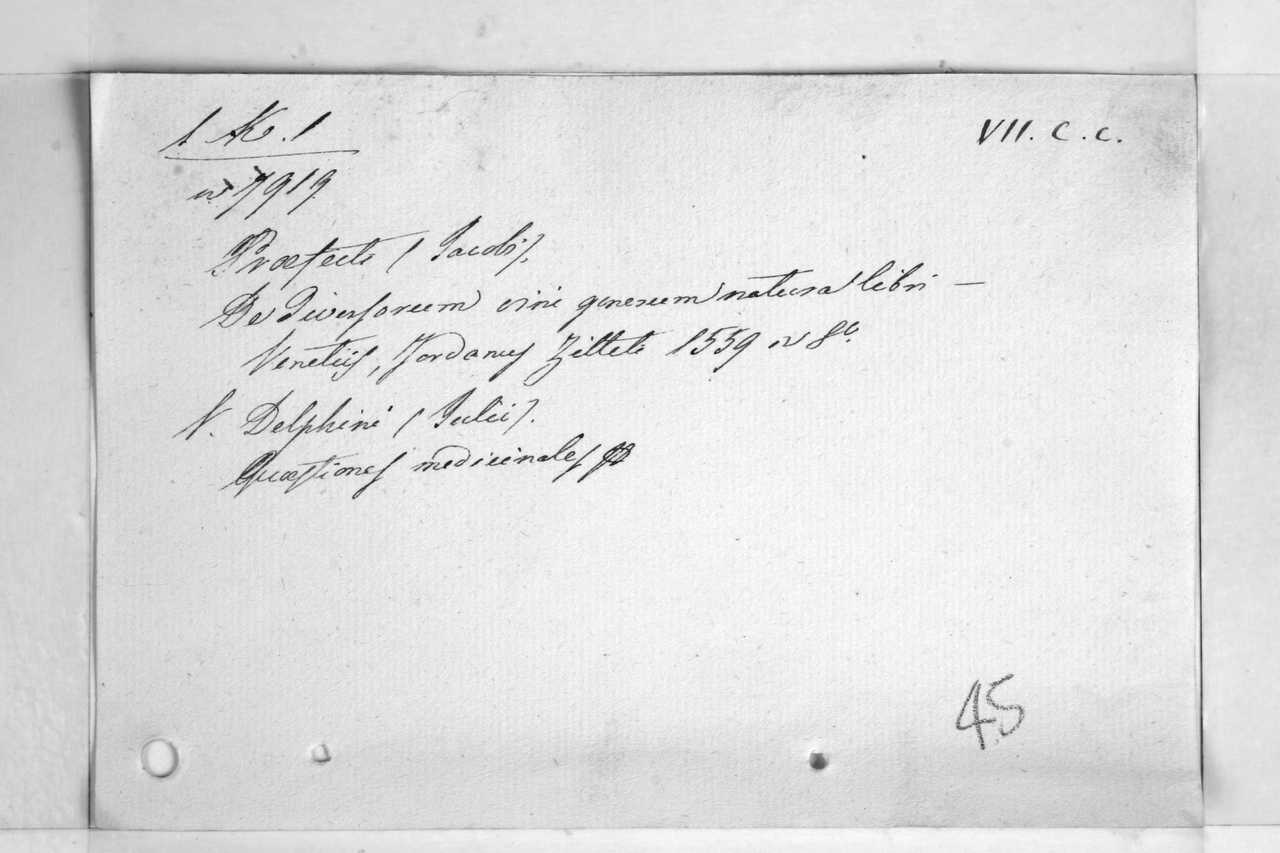 1 AK. 1
VII. C. c.
nr 7919
Præfecti (Jacobi).
De Diversorum vini generum natura libri —
Venetiis, Jordanus Zilleti 1559 in 8º.
V. Delphini (Julii).
Quæstiones medicinales
45